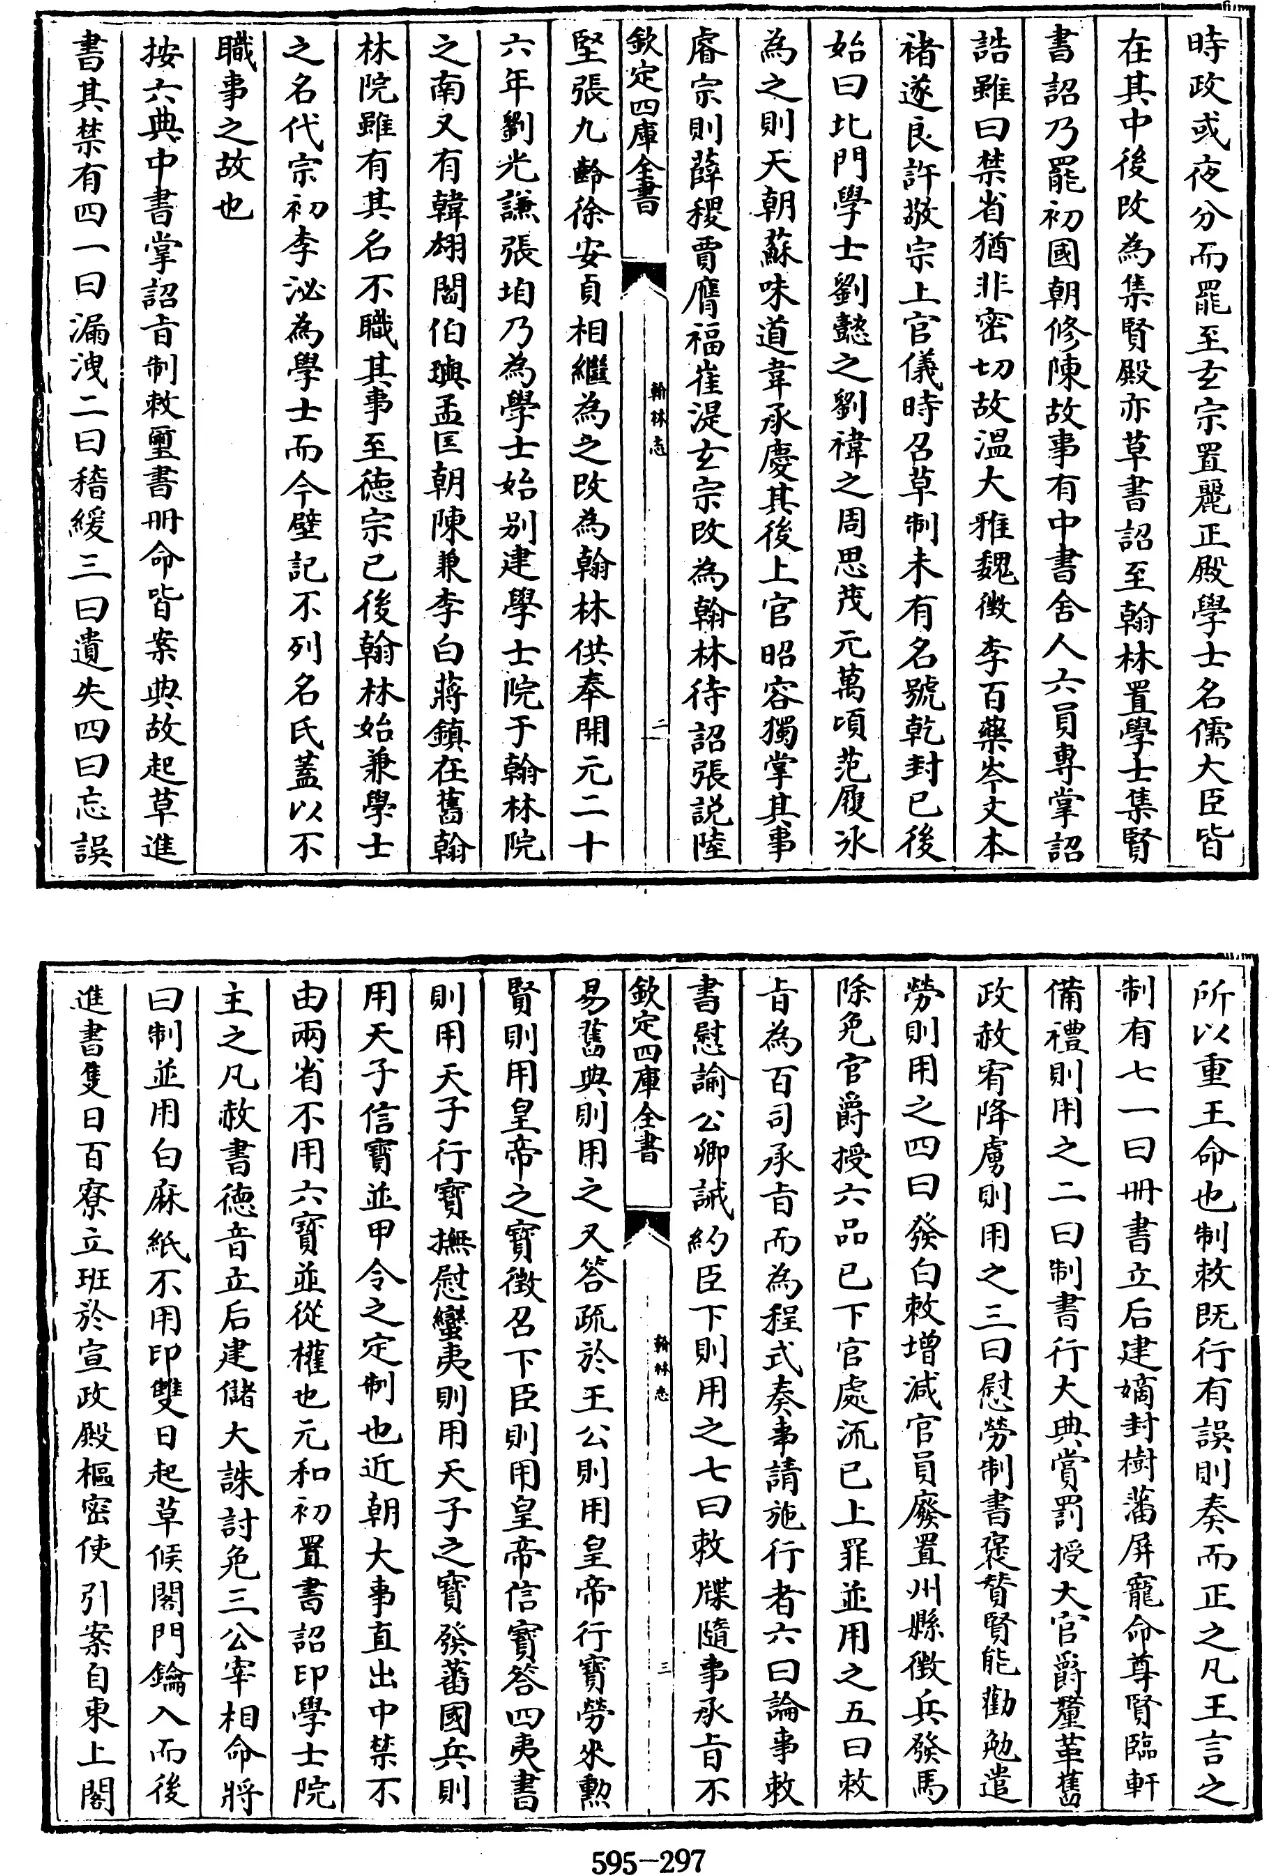 時政或夜分而罷至玄宗置麗正殿學士名儒大臣皆
在其中後改為集賢殿亦草書詔至翰林置學士集賢
書詔乃罷初國朝修陳故事有中書舍人六員專掌詔
誥雖曰禁省猶非密切故溫大雅魏徵李百藥岑文本
褚遂良許敬宗上官儀時召草制未有名號乾封已後
始曰北門學士劉懿之劉禕之周思茂元萬頃范履冰
為之則天朝蘇味道韋承慶其後上官昭容獨掌其事
睿宗則薛稷賈膺福崔湜玄宗改為翰林待詔張說陸
欽定四庫全書
翰林志
二
堅張九齡徐安貞相繼為之改為翰林供奉開元二十
六年劉光謙張垍乃為學士始别建學士院于翰林院
之南又有韓翃閻伯璵孟匡朝陳兼李白蔣鎮在舊翰
林院雖有其名不職其事至徳宗已後翰林始兼學士
之名代宗初李泌為學士而今壁記不列名氏蓋以不
職事之故也
按六典中書掌詔㫖制敕璽書冊命皆案典故起草進
書其禁有四一曰漏洩二曰稽緩三曰遺失四曰忘誤
所以重王命也制敕既行有誤則奏而正之凡王言之
制有七一曰冊書立后建嫡封樹藩屏寵命尊賢臨軒
備禮則用之二曰制書行大典賞罰授大官爵釐革舊
政赦宥降虜則用之三曰慰勞制書褒贊賢能勸勉遣
勞則用之四曰發白敕增減官員廢置州縣徴兵發馬
除免官爵授六品已下官處流已上罪並用之五曰敕
㫖為百司承㫖而為程式奏事請施行者六曰論事敕
書慰諭公卿誡約臣下則用之七曰敕牒隨事承㫖不
欽定四庫全書
翰林志
三
易舊典則用之又答疏於王公則用皇帝行寶勞來勲
賢則用皇帝之寶徴召下臣則用皇帝信寶答四夷書
則用天子行寶撫慰蠻夷則用天子之寶發蕃國兵則
用天子信寶並甲令之定制也近朝大事直出中禁不
由兩省不用六寶並從權也元和初置書詔印學士院
主之凡赦書徳音立后建儲大誅討免三公宰相命將
曰制並用白麻紙不用印雙日起草候閣門鑰入而後
進書隻日百寮立班於宣政殿樞密使引案自東上閣
595-297